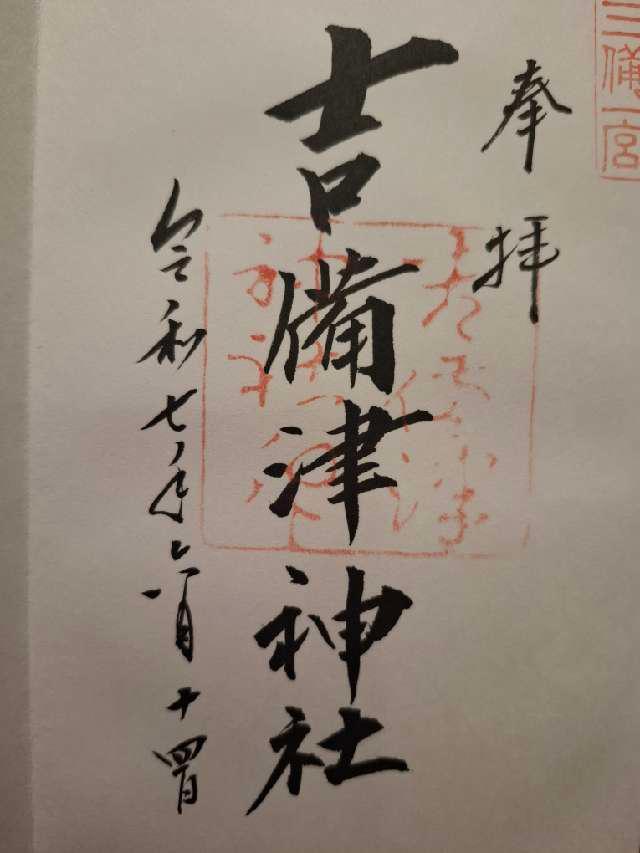 三備一宮
奉拝
吉備津神社
令和七年六月十四日